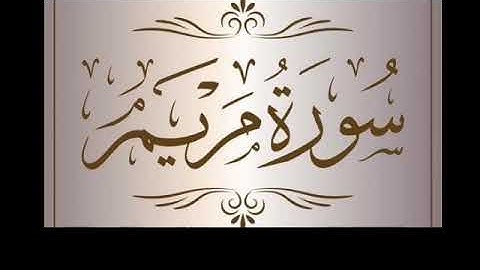 سُورَةُ مَرْيَمُ